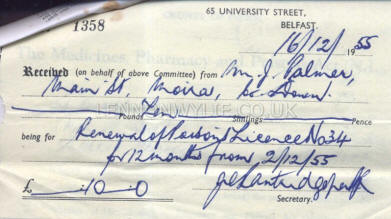 1358
65 UNIVERSITY STREET,
BELFAST.
16/12/1955
Received (on behalf of above Committee) from M. J. Palmer,
Main St. Moira, Co. Down.
Ten
Pounds Shillings Pence
LENNONWYLIE.CO.UK
being for Renewal of Poisons Licence No 34
for 12 months from 2/12/55
£ - 10 - 0
Secretary.